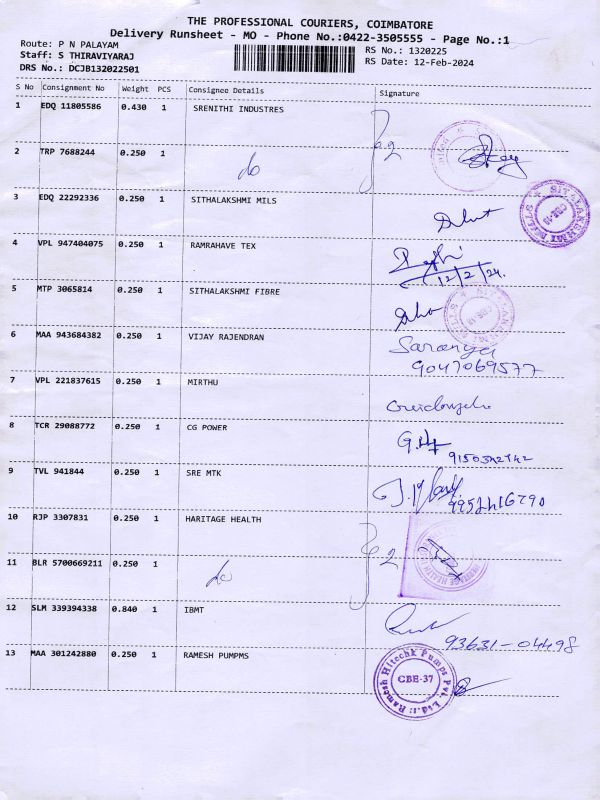 THE PROFESSIONAL COURIERS, COIMBATORE
Delivery Runsheet - MO - Phone No.:0422-3505555 - Page No.:1
Route: P N PALAYAM
Staff: S THIRAVIYARAJ
DRS No.: DCJB132022501
RS No.: 1320225
RS Date: 12-Feb-2024
S No Consignment No Weight PCS Consignee Details Signature
1 EDQ 11805586 0.430 1 SRENITHI INDUSTRES
2 TRP 7688244 0.250 1 do
3 EDQ 22292336 0.250 1 SITHALAKSHMI MILS
SITALAKSHMI MILLS
4 VPL 947404075 0.250 1 RAMRAHAVE TEX
12/2/24.
5 MTP 3065814 0.250 1 SITHALAKSHMI FIBRE
6 MAA 943684382 0.250 1 VIJAY RAJENDRAN Saranya
9047069577
7 VPL 221837615 0.250 1 MIRTHU
8 TCR 29088772 0.250 1 CG POWER
9 TVL 941844 0.250 1 SRE MTK
10 RJP 3307831 0.250 1 HARITAGE HEALTH
HERITAGE HEALTH
11 BLR 5700669211 0.250 1 do
12 SLM 339394338 0.840 1 IBMT
93631-04498
13 MAA 301242880 0.250 1 RAMESH PUMPMS
Ramesh Hitechk Pumps Pvt. Ltd.
CBE-37